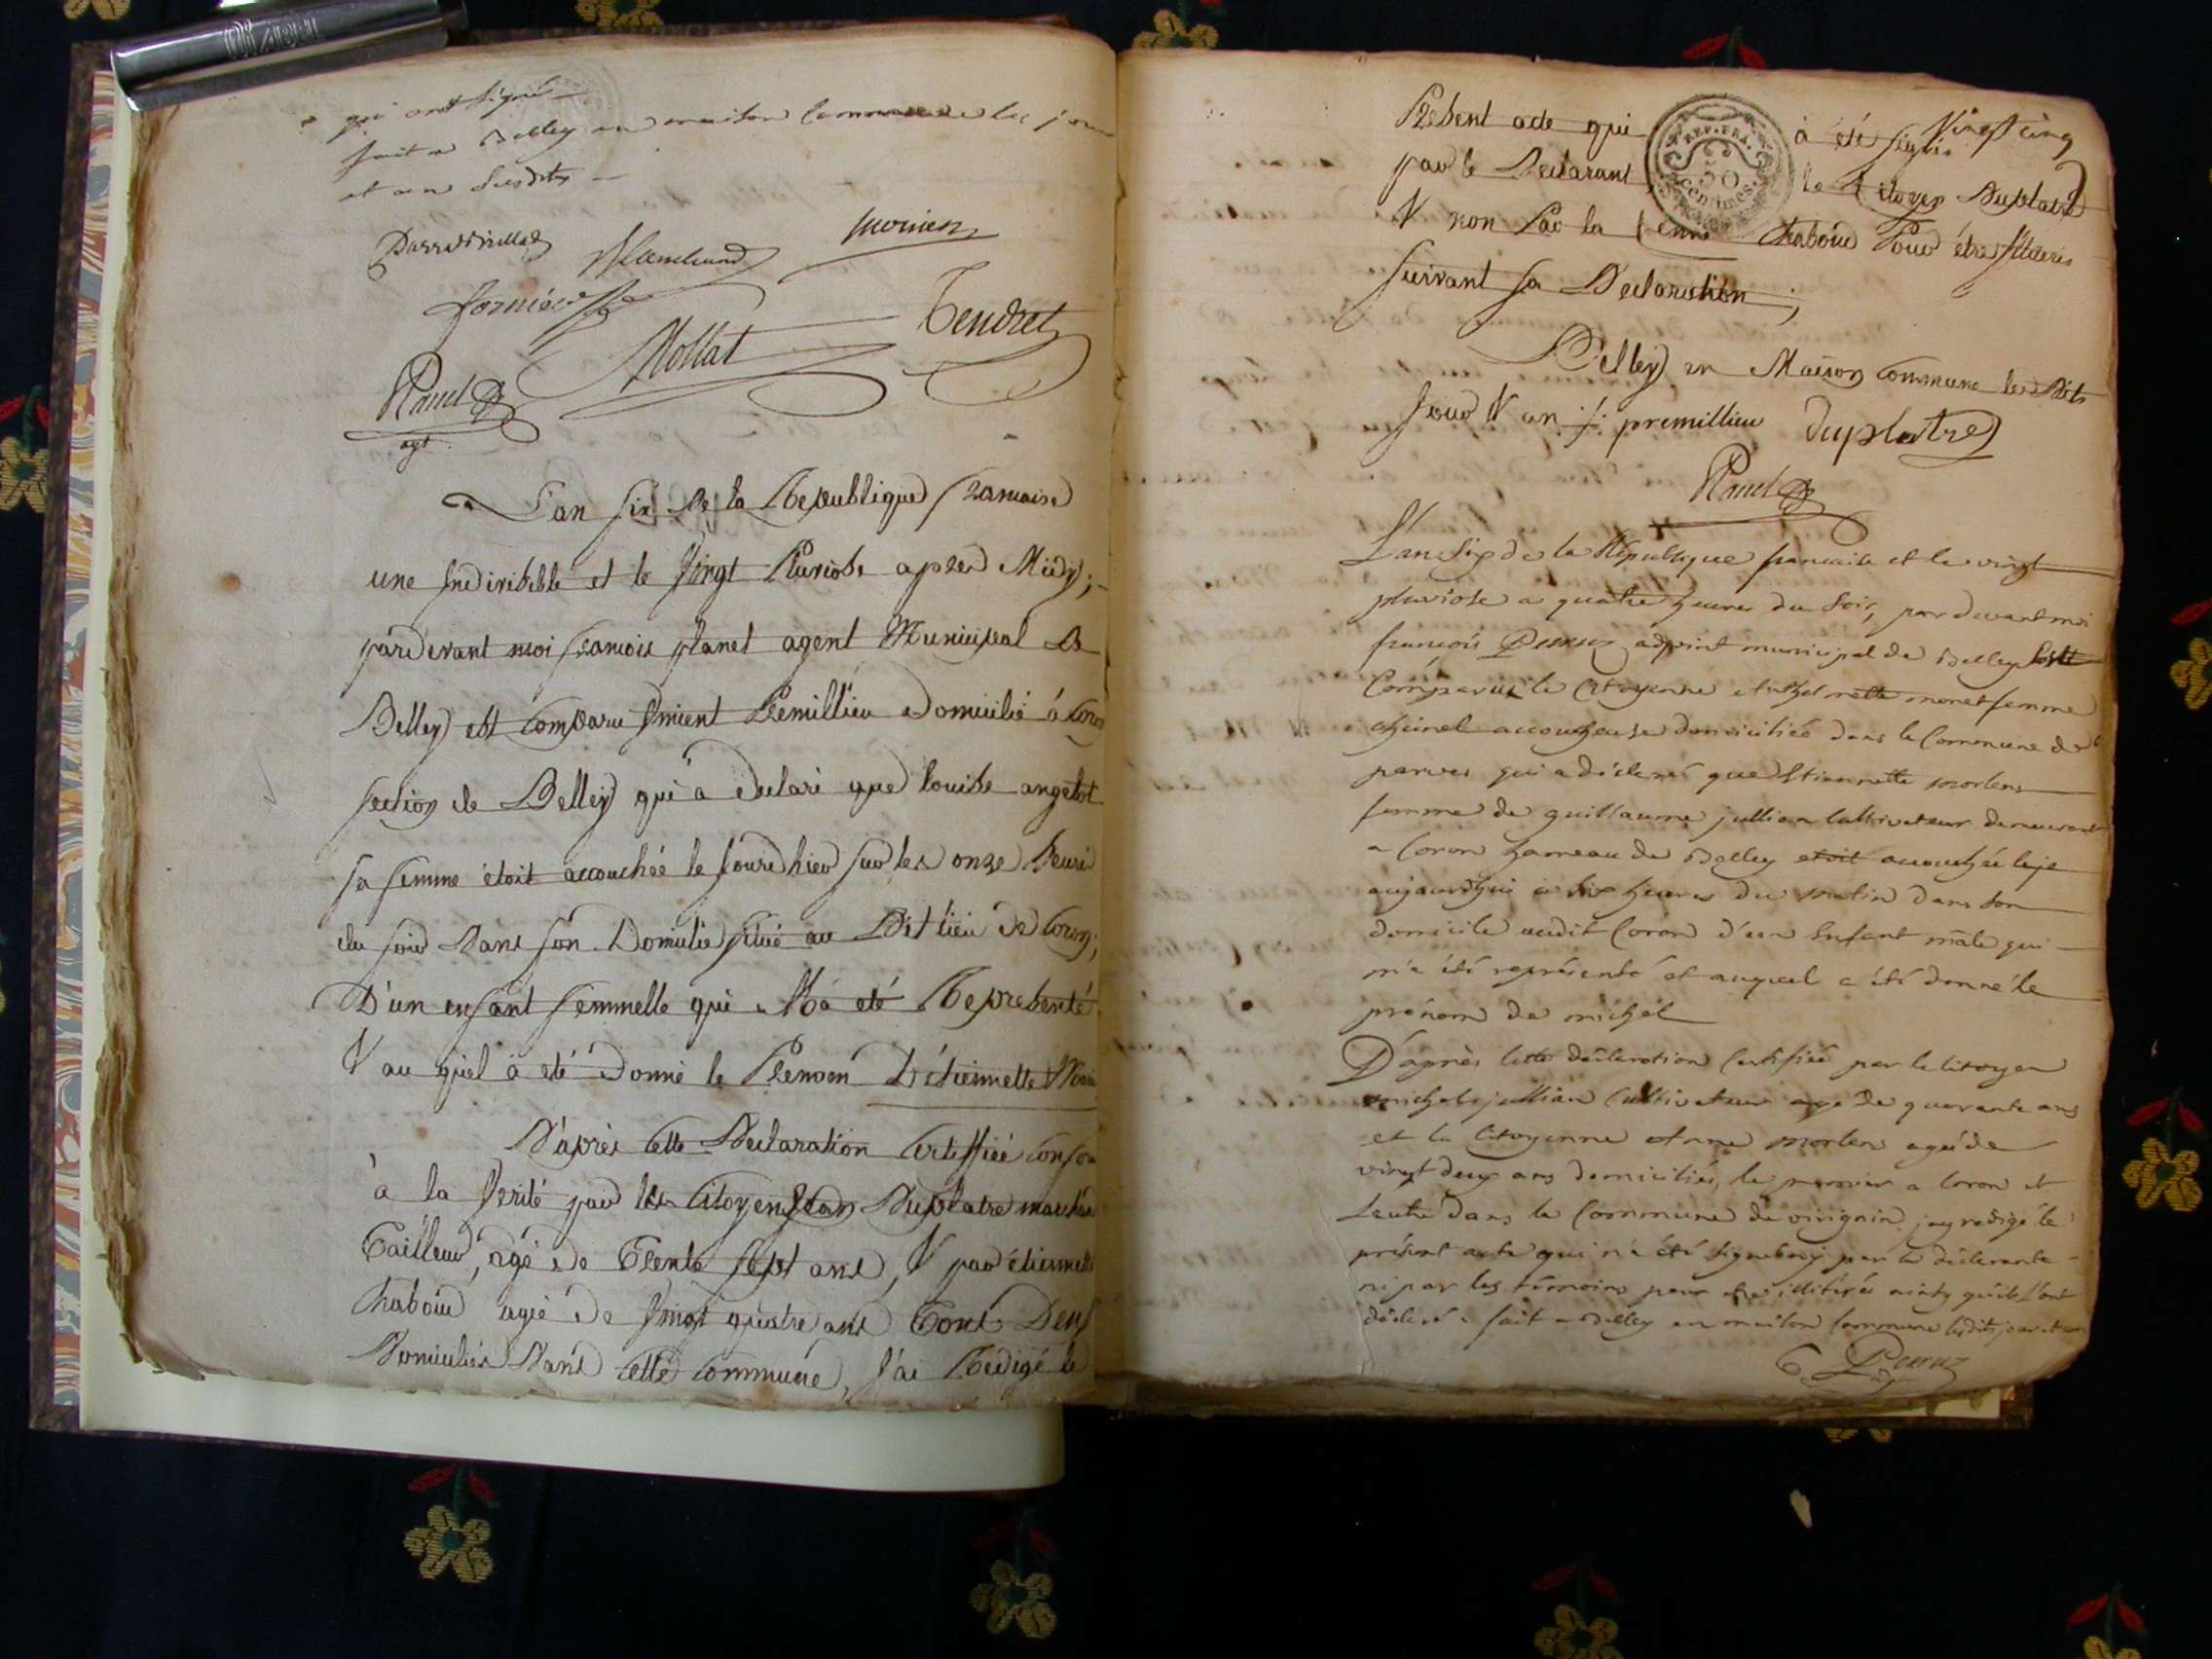 qui ont signé
fait a Belley en maison commune les jour
et an susdits
Blanchard
Mollat
Tendret
Planet
agt.
L'an six de la Republique francaise
une Indivisible et le vingt Pluviose apres Midy;
pardevant moi francois planet agent Municipal de
Belley est comparu vincent Premillieu domicilié à Coron
section de Belley qui a declaré que louise angelot
sa femme étoit accouchée le jourd'hier sur les onze heures
du soir dans son Domicile situé au Dit lieu de Coron;
D'un enfant femmelle qui m'a eté Representé
& au quel a eté donné le Prenom D'étiennette Marie
D'après cette Declaration Certiffiée Confor
à la verité par les Citoyens jean Duplatre marchand
Tailleur, agé de Trente sept ans, & par étiennette
chaboud agée de vingt quatre ans Tous Deux
Domiciliés Dans cette commune, J'ai Redigé le
Vingt cinq
Present acte qui a été signé
par le Declarant le Citoyen Duplatre
& non par la chaboud Pour être illiteré
suivant sa Declaration;
REP. FRA.
50
centimes.
Belley en Maison commune les Dits
Jour & an premillieu duplatre
Planet
L'an six de la République francaise et le vingt
pluviose a quatre heures du soir, par devant moi
françois Peruz adjoint municipal de Belley est
Comparue la Citoyenne michelette monet femme
chinel accoucheuse domiciliée dans la Commune de
parves qui a déclaré que Etiennette morlens
femme de guillaume jullian Cultivateur demeurant
a Coron hameau de Belley etoit accouchée
aujourdhui a six heures du matin dans son
domicile audit Coron d'un Enfant mâle qui
m'a été représenté et auquel a été donné le
prénom de michel
D'après cette déclaration Certifiée par le Citoyen
michel jullian Cultivateur agé de quarante ans
et la Citoyenne Anne morlens agée de
vingt deux ans domiciliés, le premier a Coron et
L'autre dans la Commune de virignin, j'ay redigé le
présent acte qui n'a été signé ny par la déclarante
ni par les témoins pour etre illitérés ainsy qu'ils l'ont
déclaré. fait a Belley en maison Commune lesdits jour et an
Peruz
adj